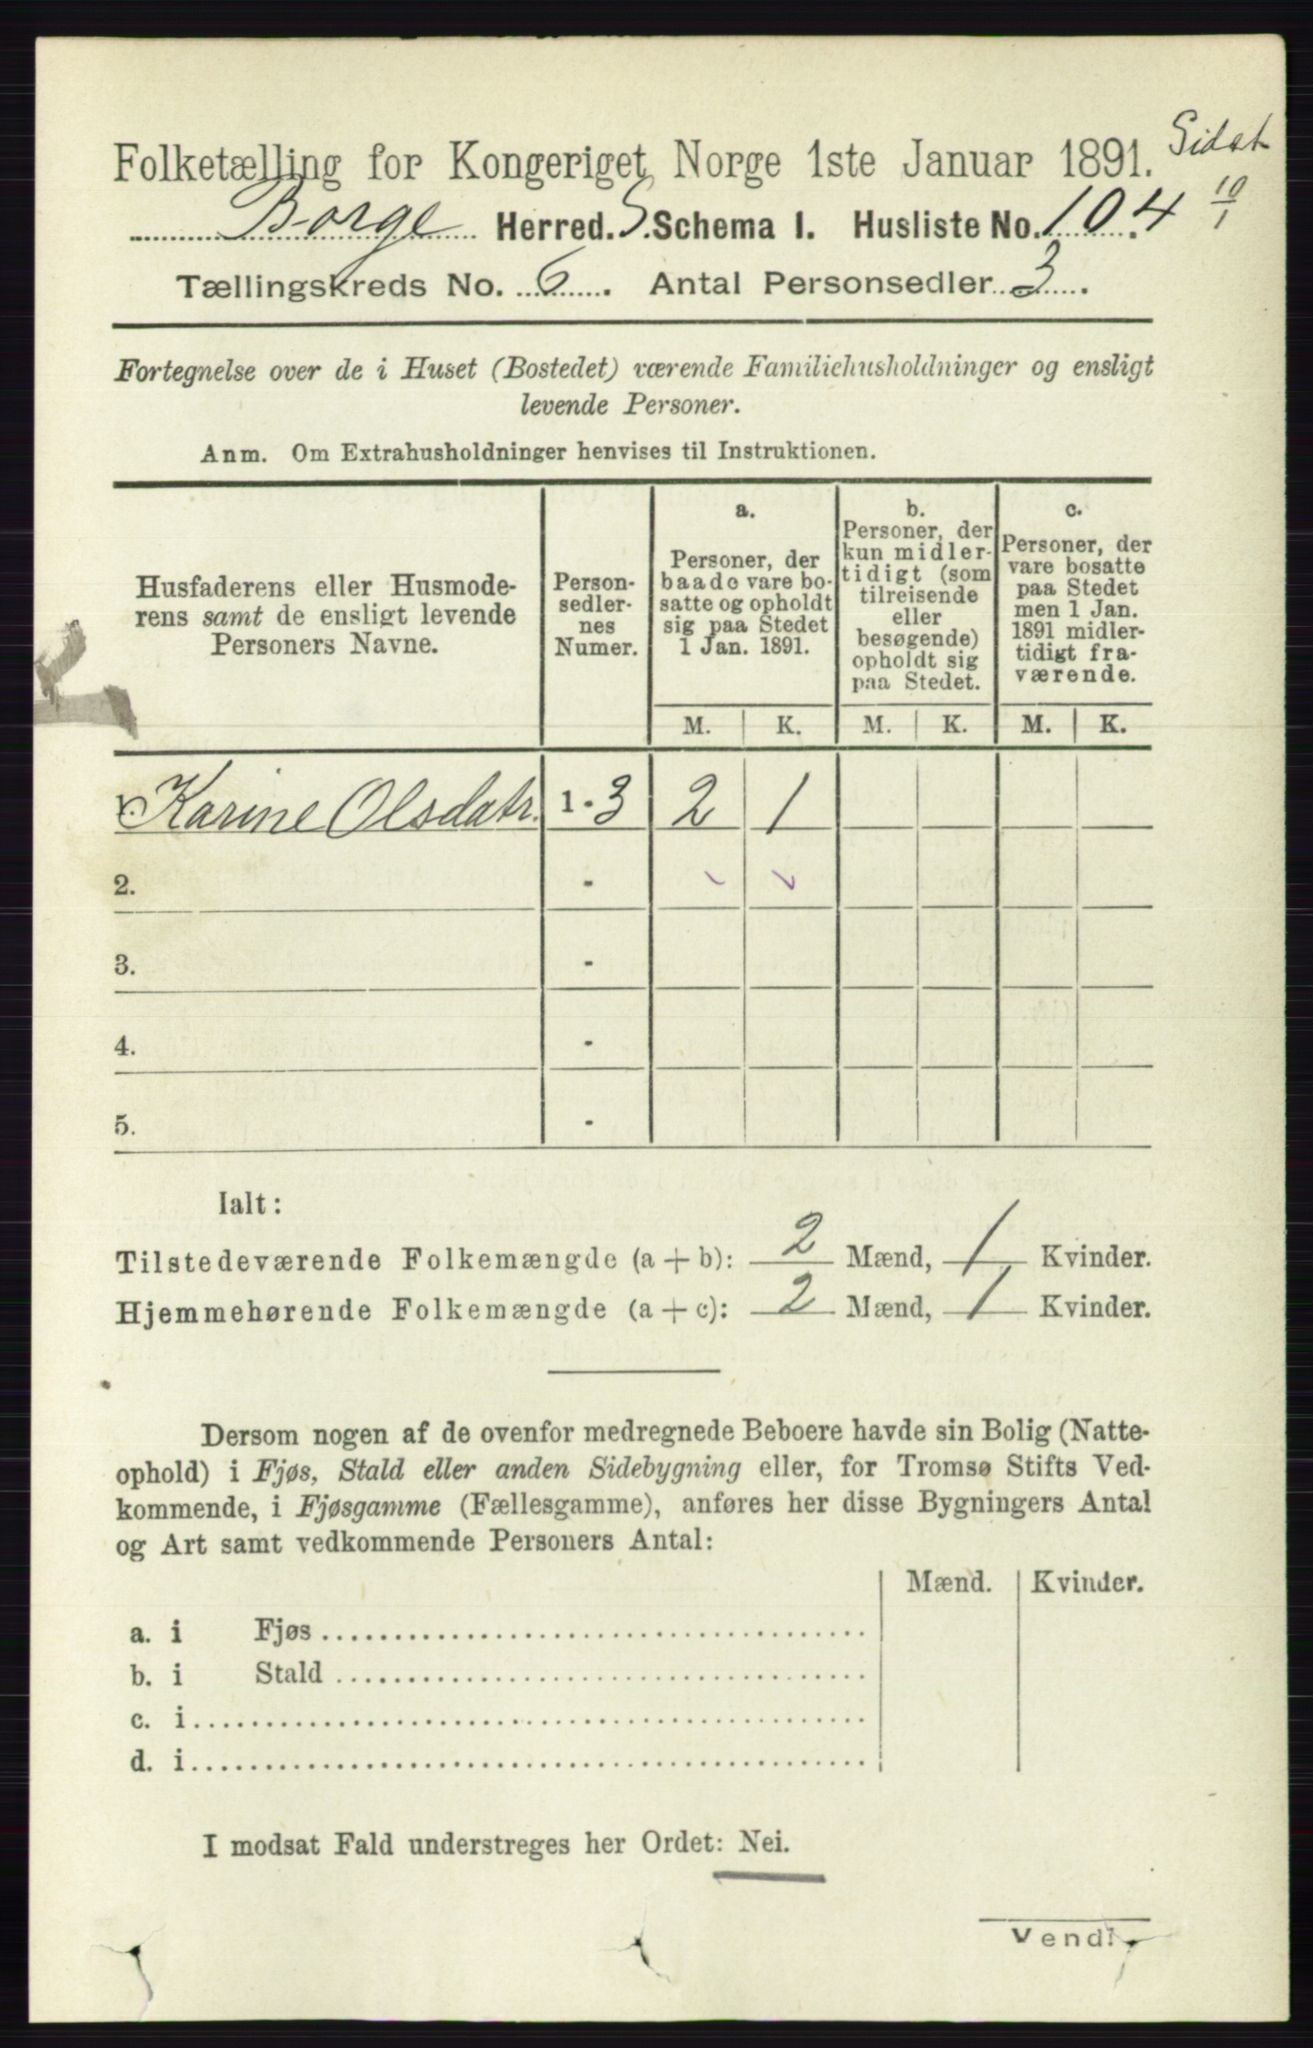 Sidst
Folketælling for Kongeriget Norge 1ste Januar 1891.
10/1
Borge Herred. S. Schema I. Husliste No. 104.
Tællingskreds No. 6. Antal Personsedler 3.
Fortegnelse over de i Huset (Bostedet) værende Familiehusholdninger og ensligt
levende Personer.
Anm. Om Extrahusholdninger henvises til Instruktionen.
Husfaderens eller Husmode-
rens samt de ensligt levende
Personers Navne.
Person-
sedler-
nes
Numer.
a.
Personer, der
baade vare bo-
satte og opholdt
sig paa Stedet
1 Jan. 1891.
b.
Personer, der
kun midler-
tidigt (som
tilreisende
eller
besøgende)
opholdt sig
paa Stedet.
c.
Personer, der
vare bosatte
paa Stedet
men 1 Jan.
1891 midler-
tidigt fra-
værende.
M. K. M. K. M. K.
1. Karine Olsdatr. 1 - 3 2 1
2. -
3. -
4. -
5. -
Ialt:
Tilstedeværende Folkemængde (a + b): 2 Mænd, 1 Kvinder.
Hjemmehørende Folkemængde (a + c): 2 Mænd, 1 Kvinder.
Dersom nogen af de ovenfor medregnede Beboere havde sin Bolig (Natte-
ophold) i Fjøs, Stald eller anden Sidebygning eller, for Tromsø Stifts Ved-
kommende, i Fjøsgamme (Fællesgamme), anføres her disse Bygningers Antal
og Art samt vedkommende Personers Antal:
Mænd. Kvinder.
a. i Fjøs
b. i Stald
c. i
d. i
I modsat Fald understreges her Ordet: Nei.
Vend!